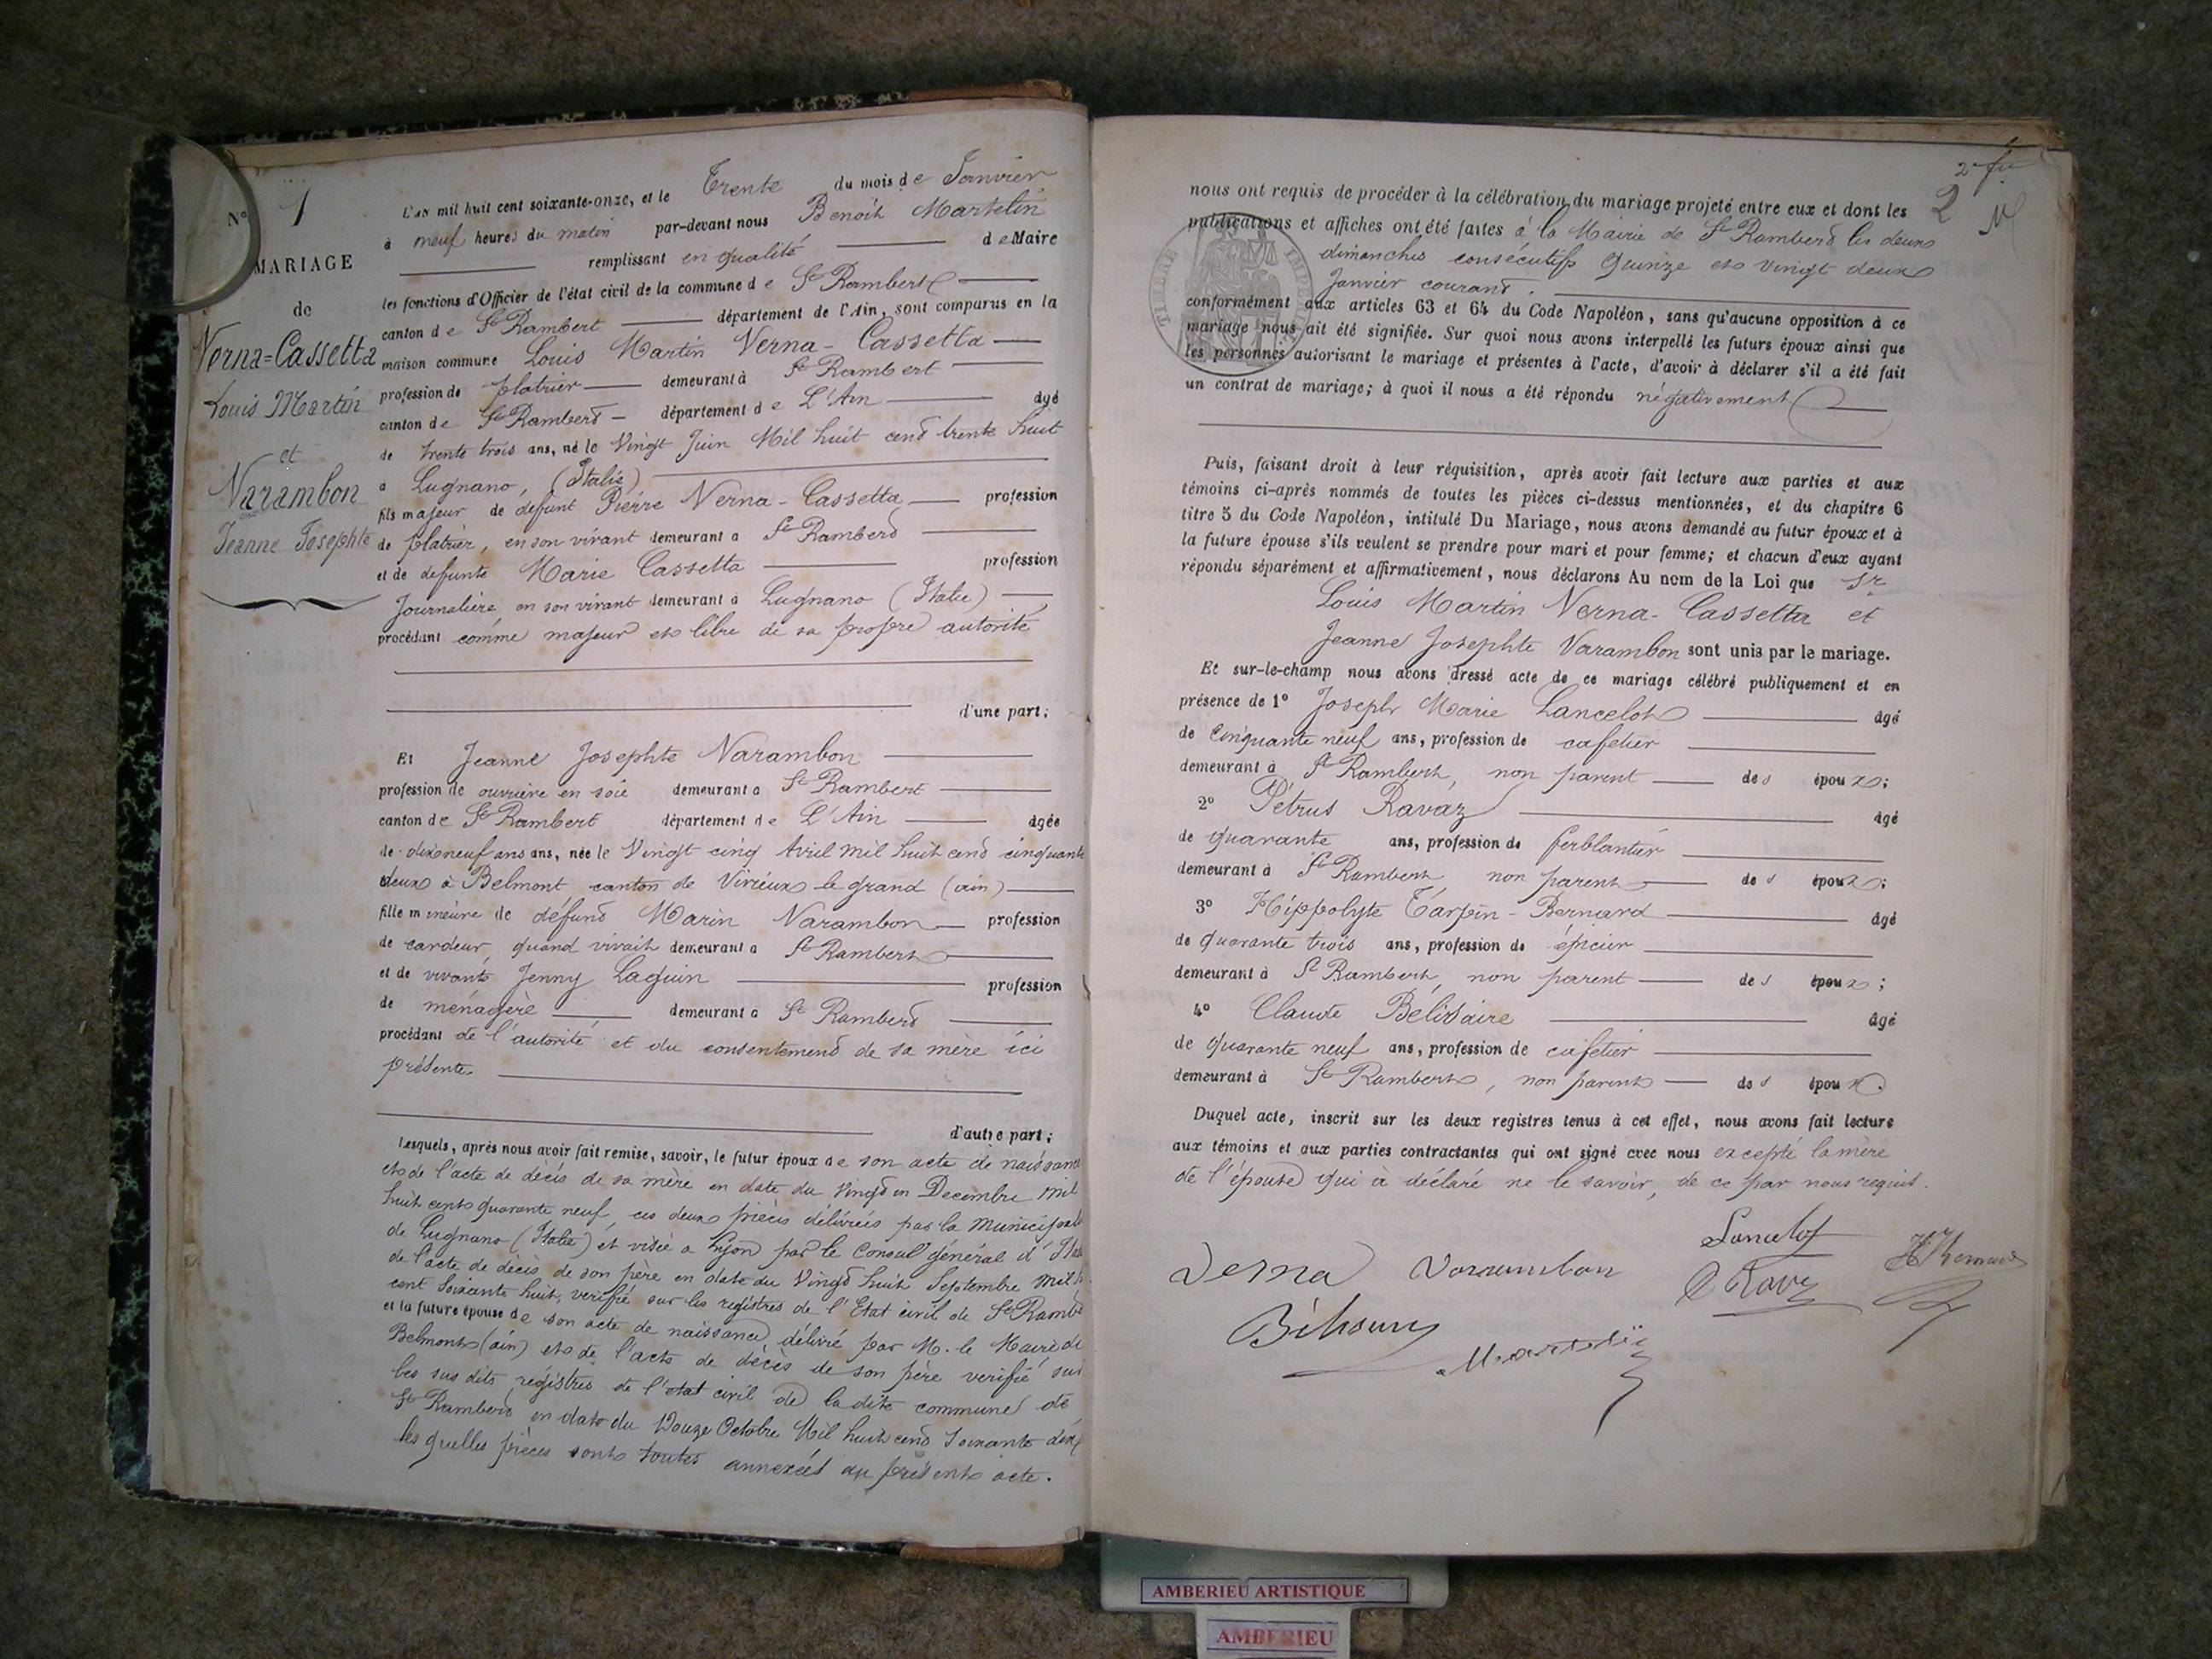 N° 1
MARIAGE
de
Verna=Cassetta
Louis Martin
et
Varambon
Jeanne Josephte
L'an mil huit cent soixante-onze, et le Trente du mois de Janvier
à neuf heures du matin par-devant nous Benoît Martelin
remplissant en qualité de Maire
les fonctions d'Officier de l'état civil de la commune de St Rambert
canton de St Rambert département de l'Ain, sont comparus en la
maison commune Louis Martin Verna-Cassetta
profession de platrier demeurant à St Rambert
canton de St Rambert département de L'Ain âgé
de trente trois ans, né le Vingt Juin Mil huit cent trente huit
a Lugnano, (Italie)
fils majeur de defunt Pierre Verna-Cassetta profession
de platrier, en son vivant demeurant a St Rambert
et de defunte Marie Cassetta profession
Journalière en son vivant demeurant a Lugnano (Italie)
procédant comme majeur et libre de sa propre autorité
d'une part;
Et Jeanne Josephte Varambon
profession de ouvrière en soie demeurant a St Rambert
canton de St Rambert département de L'Ain âgée
de dix neuf ans ans, née le Vingt cinq Avril mil huit cent cinquante
deux à Belmont canton de Virieux le grand (ain)
fille mineure de défunt Marin Varambon profession
de cardeur, quand vivait demeurant a St Rambert
et de vivante Jenny Laguin profession
de menagère demeurant a St Rambert
procédant de l'autorité et du consentement de sa mère ici
présente.
d'autre part;
Lesquels, après nous avoir fait remise, savoir, le futur époux de son acte de naissance
et de l'acte de décès de sa mère en date du Vingt un Decembre mil
huit cent quarante neuf, ces deux pièces délivrées par la Municipalité
de Lugnano (Italie) et visée a Lyon par le Consul général d'Italie
de l'acte de décès de son père en date du Vingt huit Septembre mil h
cent soixante huit, verifié sur les registres de l'Etat civil de St Rambt
et la future épouse de son acte de naissance délivré par M. le Maire de
Belmont (ain) et de l'acte de décès de son père verifié sur
les sus dits registres de l'etat civil de la dite commune de
St Rambert en date du Douze Octobre Mil huit cent soixante dix
les quelles pièces sont toutes annexées au présent acte.
2
nous ont requis de procéder à la célébration du mariage projeté entre eux et dont les
publications et affiches ont été faites à la Mairie de St Rambert les deux
dimanches consécutifs quinze et vingt deux
Janvier courant.
conformément aux articles 63 et 64 du Code Napoléon, sans qu'aucune opposition à ce
mariage nous ait été signifiée. Sur quoi nous avons interpellé les futurs époux ainsi que
les personnes autorisant le mariage et présentes à l'acte, d'avoir à déclarer s'il a été fait
un contrat de mariage; à quoi il nous a été répondu négativement
Puis, faisant droit à leur réquisition, après avoir fait lecture aux parties et aux
témoins ci-après nommés de toutes les pièces ci-dessus mentionnées, et du chapitre 6
titre 5 du Code Napoléon, intitulé Du Mariage, nous avons demandé au futur époux et à
la future épouse s'ils veulent se prendre pour mari et pour femme; et chacun d'eux ayant
répondu séparément et affirmativement, nous déclarons Au nom de la Loi que Sr
Louis Martin Verna-Cassetta et
Jeanne Josephte Varambon sont unis par le mariage.
Et sur-le-champ nous avons dressé acte de ce mariage célébré publiquement et en
présence de 1° Joseph Marie Lancelot âgé
de Cinquante neuf ans, profession de cafetier
demeurant à St Rambert, non parent des époux;
2° Pétrus Ravaz âgé
de quarante ans, profession de ferblantier
demeurant à St Rambert non parent des époux;
3° Hippolyte Tarpin-Bernard âgé
de quarante trois ans, profession de épicier
demeurant à St Rambert, non parent des époux;
4° Claude Belissaire âgé
de quarante neuf ans, profession de cafetier
demeurant à St Rambert, non parent des époux.
Duquel acte, inscrit sur les deux registres tenus à cet effet, nous avons fait lecture
aux témoins et aux parties contractantes qui ont signé avec nous excepté la mère
de l'épouse qui a déclaré ne le savoir, de ce par nous requis.
Verna Varrambon Lancelot
AMBERIEU ARTISTIQUE
AMBERIEU